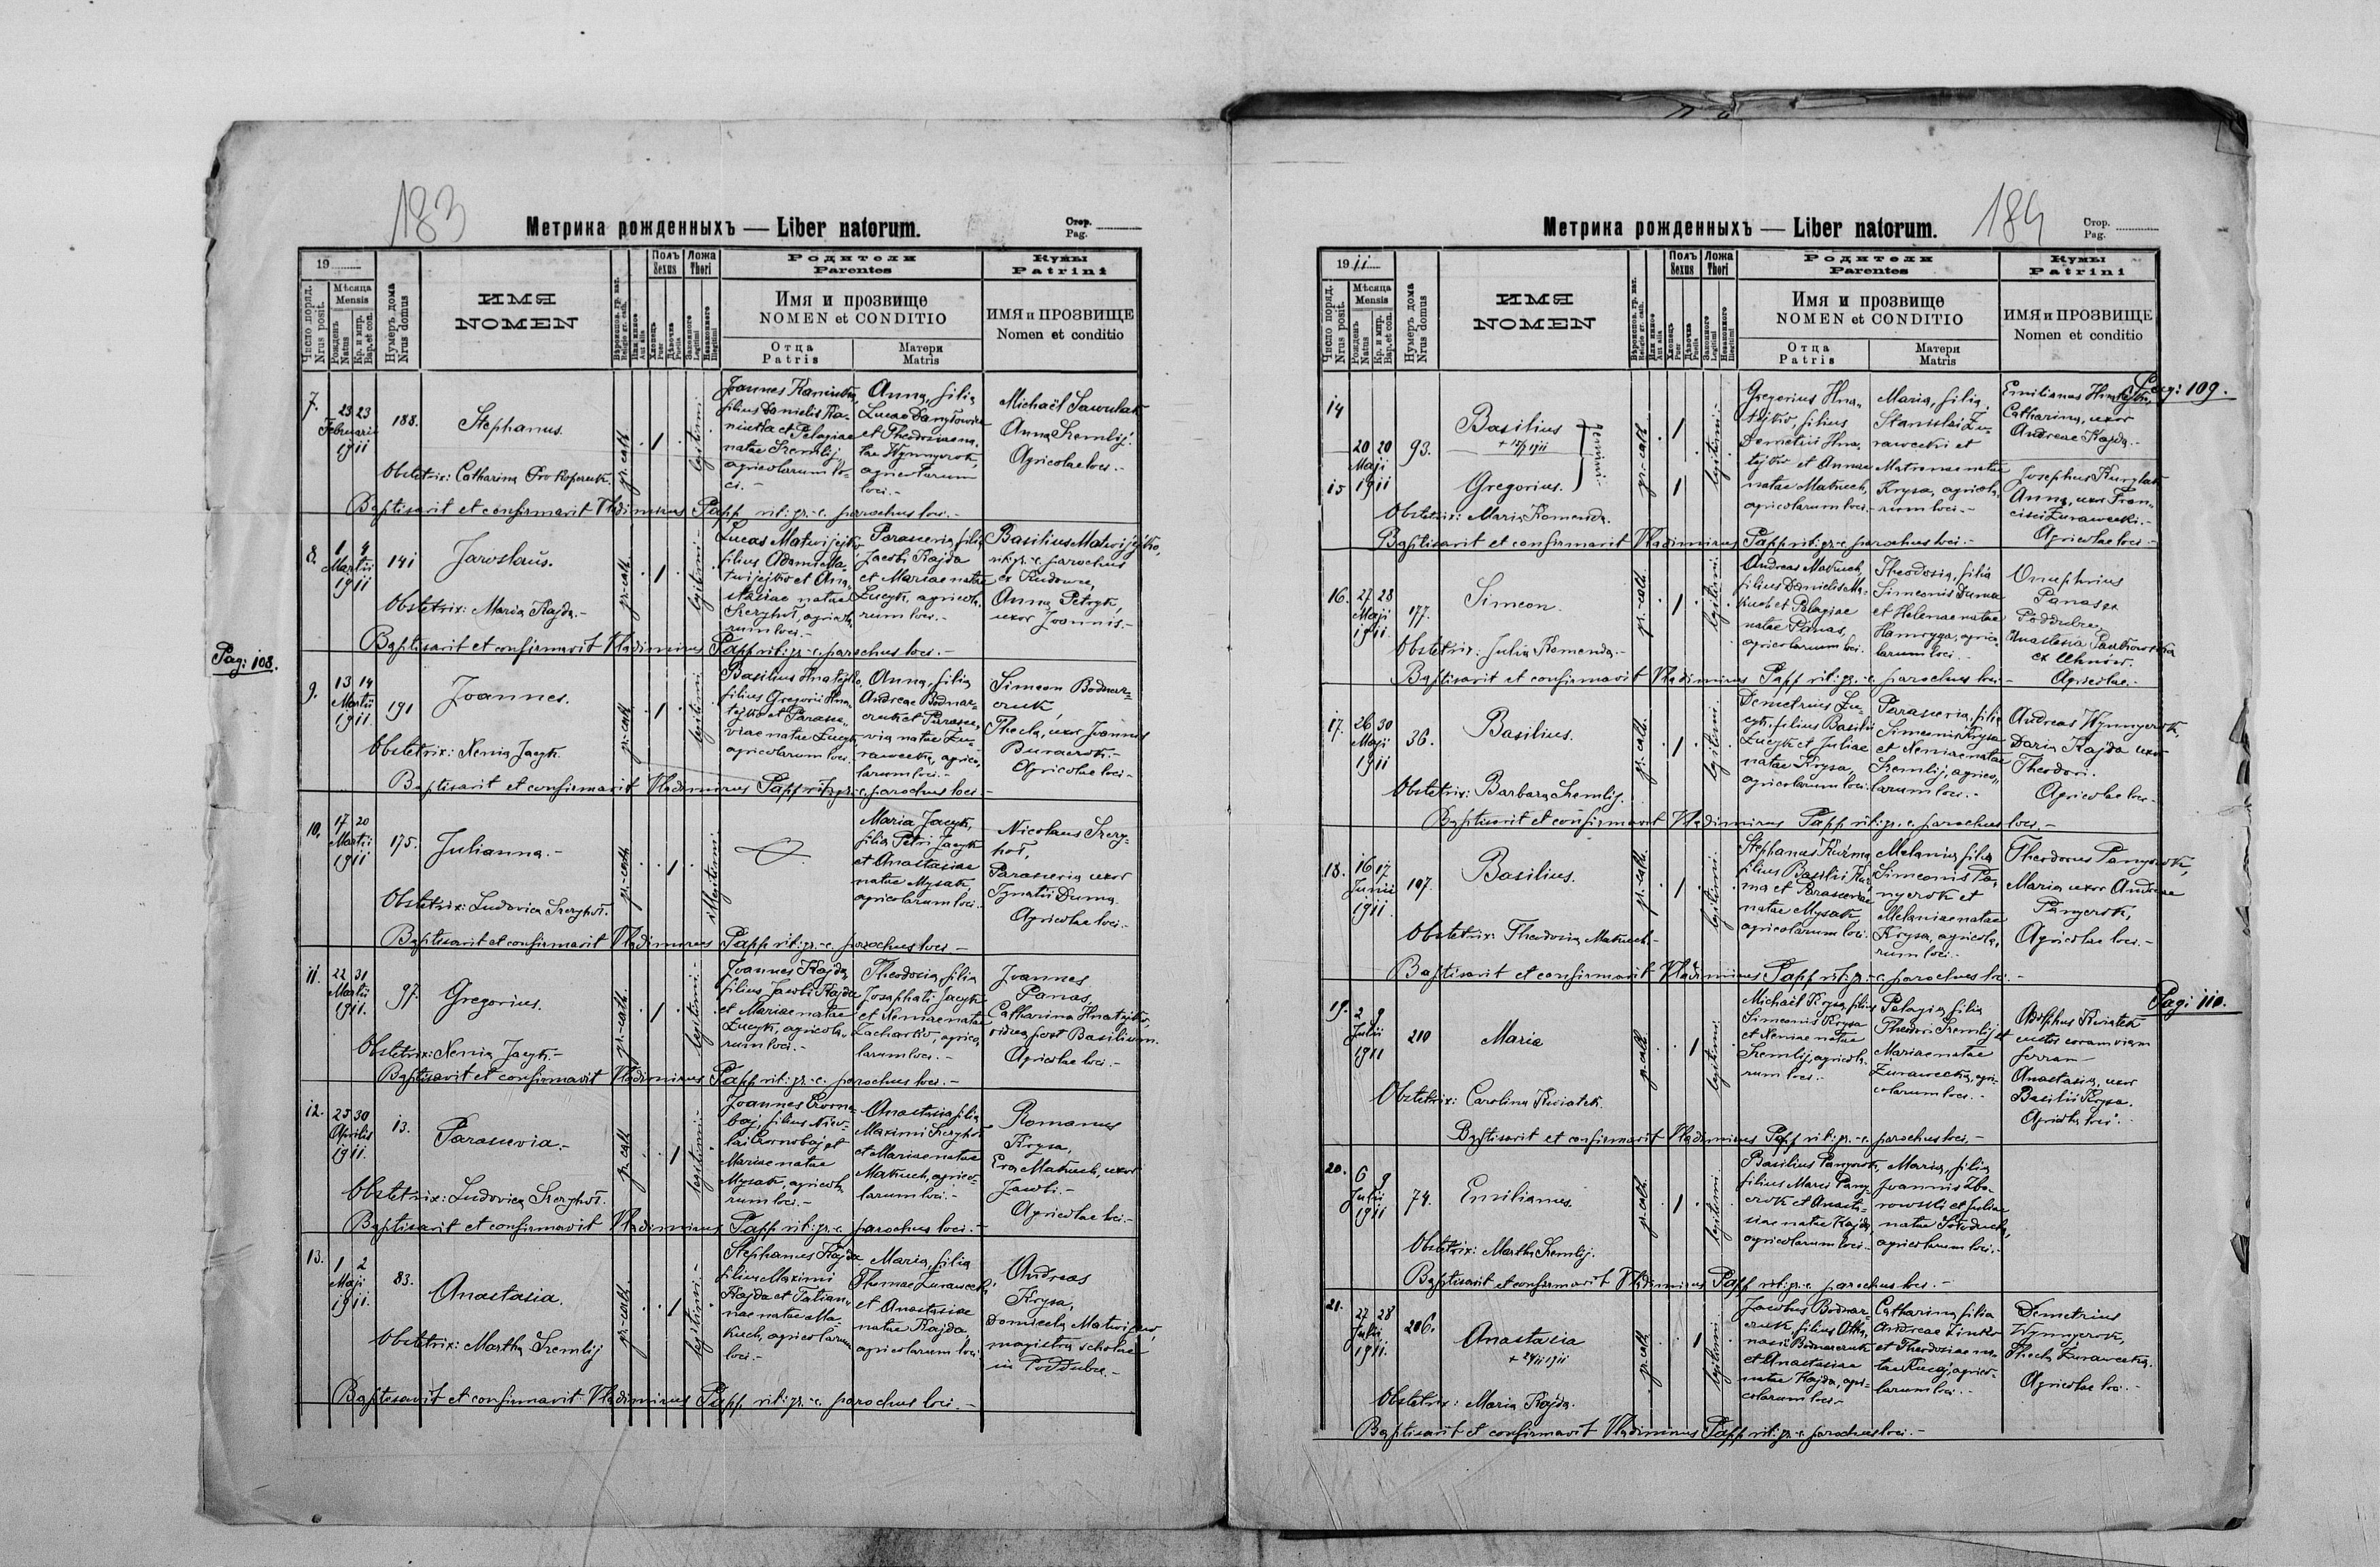 183
Метрика рожденныхъ — Liber natorum.
Стор.
Pag.
19
Число поряд.
Nrus posit.
Мѣсяца
Mensis
Рожденъ
Natus
Кр. и мѵр.
Bap. et con.
Нумеръ дома
Nrus domus
ИМЯ
NOMEN
Вѣроиспов. гр. кат.
Religio gr. cath.
Или инное
Aut alia
Полъ
Sexus
Хлопець
Puer
Дѣвочка
Puella
Ложа
Thori
Законного
Legitimi
Незаконного
Illegitimi
Родители
Parentes
Имя и прозвище
NOMEN et CONDITIO
Отца
Patris
Матери
Matris
Кумы
Patrini
ИМЯ и ПРОЗВИЩЕ
Nomen et conditio
7.
23 23
Februarii
1911
188.
Stephanus.
Obstetrix: Catharina Prokopczuk.
gr.-cath.
1
legitimi
Joannes Kaniuka,
filius Danielis Ka-
niuka et Pelagiae
natae Szemlij,
agricolarum lo-
ci. -
Anna, filia
Lucae
et Theodosiae na-
tae Wynnyczok,
agricolarum
loci. -
Michaël
Anna Szemlij.
Agricolae loci. -
Baptisavit et confirmavit Vladimirus Papp rit: gr.-c. parochus loci. -
8.
1 4
Martii
1911
141
Jaroslaŭs.
Obstetrix: Maria Kajda. -
gr.-cath.
1
legitimi -
Lucas Matwijejko,
filius Adami Ma-
twijejko et Ana-
stasiae natae
Szeryhoŧ, agricola-
rum loci. -
Parascevia, filia
Jacobi Kajda
et Mariae natae
Łucyk, agricola-
rum loci. -
Basilius Matwijejko,
rit. gr.-c. parochus
ex Rudowce,
Anna Petryk,
uxor Joannis. -
Baptisavit et confirmavit Vladimirus Papp rit: gr.-c. parochus loci. -
Pag: 108.
9.
13 14
Martii
1911
191
Joannes.
Obstetrix: Xenia Jacyk.
gr.-cath.
1
legitimi
Basilius Hnatejko,
filius Gregorii Hna-
tejko et Parasce-
viae natae Łucyk,
agricolarum loci.
Anna, filia
Andreae Bodnar-
czuk et Parasce-
via natae Żu-
rawecka, agrico-
larum loci. -
Simeon Bodnar-
czuk,
Thecla, uxor Joannis
Agricolae loci -
Baptisavit et confirmavit Vladimirus Papp rit: gr.-c. parochus loci -
10.
17 20
Martii
1911
175.
Julianna. -
Obstetrix: Ludovica Szeryhoŧ.
gr.-cath.
1
illegitimi
Maria Jacyk,
filia Petri Jacyk
et Anastasiae
natae Mysak,
agricolarum loci.
Nicolaus Szery-
hoŧ,
Parascevia uxor
Ignatii Duma.
Agricolae loci. -
Baptisavit et confirmavit Vladimirus Papp rit: gr.-c. parochus loci. -
11.
22 31
Martii
1911.
97.
Gregorius.
Obstetrix: Xenia Jacyk. -
gr.-cath.
1
legitimi. -
Joannes Kajda,
filius Jacobi Kajda
et Mariae natae
Łucyk, agricola-
rum loci. -
Theodosia, filia
Josaphati Jacyk
et Xeniae natae
Zacharko, agrico-
larum loci. -
Joannes
Panas,
Catharina Hnatejko,
vidua post Basilium.
Agricolae loci. -
Baptisavit et confirmavit Vladimirus Papp rit: gr.-c. parochus loci. -
12.
25 30
Aprilis
1911.
13.
Parascevia. -
Obstetrix: Ludovica Szeryhoŧ.
gr.-cath.
1
legitimi. -
Joannes Czorno-
baj, filius Nico-
lai Czornobaj et
Mariae natae
Mysak, agricola-
rum loci. -
Anastasia, filia
Maximi Szeryhoŧ
et Mariae natae
Makuch, agrico-
larum loci. -
Romanus
Krysa,
Eva Makuch, uxor
Jacobi. -
Agricolae loci. -
Baptisavit et confirmavit Vladimirus Papp rit: gr.-c. parochus loci. -
13.
1 2
Maji
1911.
83.
Anastasia.
Obstetrix: Martha Szemlij
gr.-cath.
1
legitimi. -
Stephanus Kajda
filius Maximi
Kajda et Tatian-
nae natae Ma-
kuch, agricolarum
loci. -
Maria, filia
Thomae Żurawecki
et Anastasiae
natae Kajda,
agricolarum loci
Andreas
Krysa,
magistra scholae
in Poddubce. -
Baptisavit et confirmavit Vladimirus Papp rit: gr.-c. parochus loci. -
184
Метрика рожденныхъ — Liber natorum.
Стор.
Pag.
1911
Число поряд.
Nrus posit.
Мѣсяца
Mensis
Рожденъ
Natus
Кр. и мѵр.
Bap. et con.
Нумеръ дома
Nrus domus
ИМЯ
NOMEN
Вѣроиспов. гр. кат.
Religio gr. cath.
Или инное
Aut alia
Полъ
Sexus
Хлопець
Puer
Дѣвочка
Puella
Ложа
Thori
Законного
Legitimi
Незаконного
Illegitimi
Родители
Parentes
Имя и прозвище
NOMEN et CONDITIO
Отца
Patris
Матери
Matris
Кумы
Patrini
ИМЯ и ПРОЗВИЩЕ
Nomen et conditio
Pag: 109.
14
15
20 20
Maji
1911
93.
Basilius
Gregorius.
gemini. -
Obstetrix: Maria Komenda.
gr.-cath.
1
1
legitimi. -
Gregorius Hna-
tejko, filius
Demetrii Hna-
tejko et Annae
natae Makuch,
agricolarum loci. -
Maria, filia
Stanislai Żu-
rawecki et
Matronae natae
Krysa, agricola-
rum loci. -
Emilianus Hnatejko,
Catharina, uxor
Andreae Kajda. -
Josephus Kurylak
Anna, uxor Fran-
cisci Żurawecki. -
Agricolae loci -
Baptisavit et confirmavit Vladimirus Papp rit: gr.-c. parochus loci. -
16.
27 28
Maji
1911.
177.
Simeon.
Obstetrix: Julia Komenda. -
gr.-cath.
1
legitimi
Andreas Makuch,
filius Danielis Ma-
kuch et Pelagiae
natae Panas,
agricolarum loci.
Theodosia, filia
Simeonis Duma
et Helenae natae
Hamryga, agrico-
larum loci. -
Onuphrius
Panas ex
Poddubce,
Anastasia
ex Uhnów.
Agricolae. -
Baptisavit et confirmavit Vladimirus Papp rit: gr.-c. parochus loci -
17.
26 30
Maji
1911
36.
Basilius.
Obstetrix: Barbara Szemlij.
gr.-cath.
1
legitimi
Demetrius Łu-
cyk, filius Basilii
Łucyk et Juliae
natae Krysa,
agricolarum loci.
Parascevia, filia
Simeonis Krysa
et Xeniae natae
Szemlij, agrico-
larum loci. -
Andreas Wynnyczok,
Daria Kajda uxor
Theodori.
Agricolae loci -
Baptisavit et confirmavit Vladimirus Papp rit: gr.-c. parochus loci. -
18.
16 17
Junii
1911.
107.
Basilius.
Obstetrix: Theodosia Makuch -
gr.-cath.
1
legitimi
Stephanus Kuźma,
filius Basilii Kuź-
ma et Parasceviae
natae Mysak,
agricolarum loci.
Melania, filia
Simeonis Pa-
nyczok et
Melaniae natae
Krysa, agricola-
rum loci. -
Theodorus Panyczok,
Maria uxor Andreae
Panyczok,
Agricolae loci. -
Baptisavit et confirmavit Vladimirus Papp rit: gr.-c. parochus loci. -
Pag: 110.
19.
2 9
Julii
1911
210
Maria
Obstetrix: Carolina Kwiatek.
gr.-cath.
1
legitimi
Michaël Krysa, filius
Simeonis Krysa
et Xeniae natae
Szemlij, agricola-
rum loci. -
Pelagia, filia
Theodori Szemlij et
Mariae natae
Żurawecka, agri-
colarum loci. -
Adolphus Kwiatek
custos coram viam
ferram
Anastasia, uxor
Basilii Krysa.
Agricola loci. -
Baptisavit et confirmavit Vladimirus Papp rit: gr.-c. parochus loci. -
20.
6 9
Julii
1911
74.
Emilianus.
Obstetrix: Martha Szemlij.
gr.-cath.
1
legitimi
Basilius Panyczok,
filius Marci Pany-
czok et Anasta-
siae natae Kajda,
agricolarum loci. -
Maria, filia
Joannis Zbo-
rowski et Juliae
natae
agricolarum loci. -
Baptisavit et confirmavit Vladimirus Papp rit: gr.-c. parochus loci. -
21.
27 28
Julii
1911.
206.
Anastasia
Obstetrix: Maria Kajda.
gr.-cath.
1
legitimi
Jacobus Bodnar-
czuk filius Atha-
nasii Bodnarczuk
et Anastasiae
natae Kajda, agri-
colarum loci. -
Catharina filia
Andreae Zinko
et Theodosiae na-
tae agrico-
larum loci. -
Demetrius
Wynnyczok,
Thecla Żurawecka.
Agricolae loci. -
Baptisavit et confirmavit Vladimirus Papp rit: gr.-c. parochus loci. -